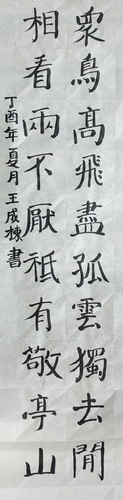 衆鳥高飛盡孤雲獨去閒
相看兩不厭祗有敬亭山
丁酉年夏月王成棟書